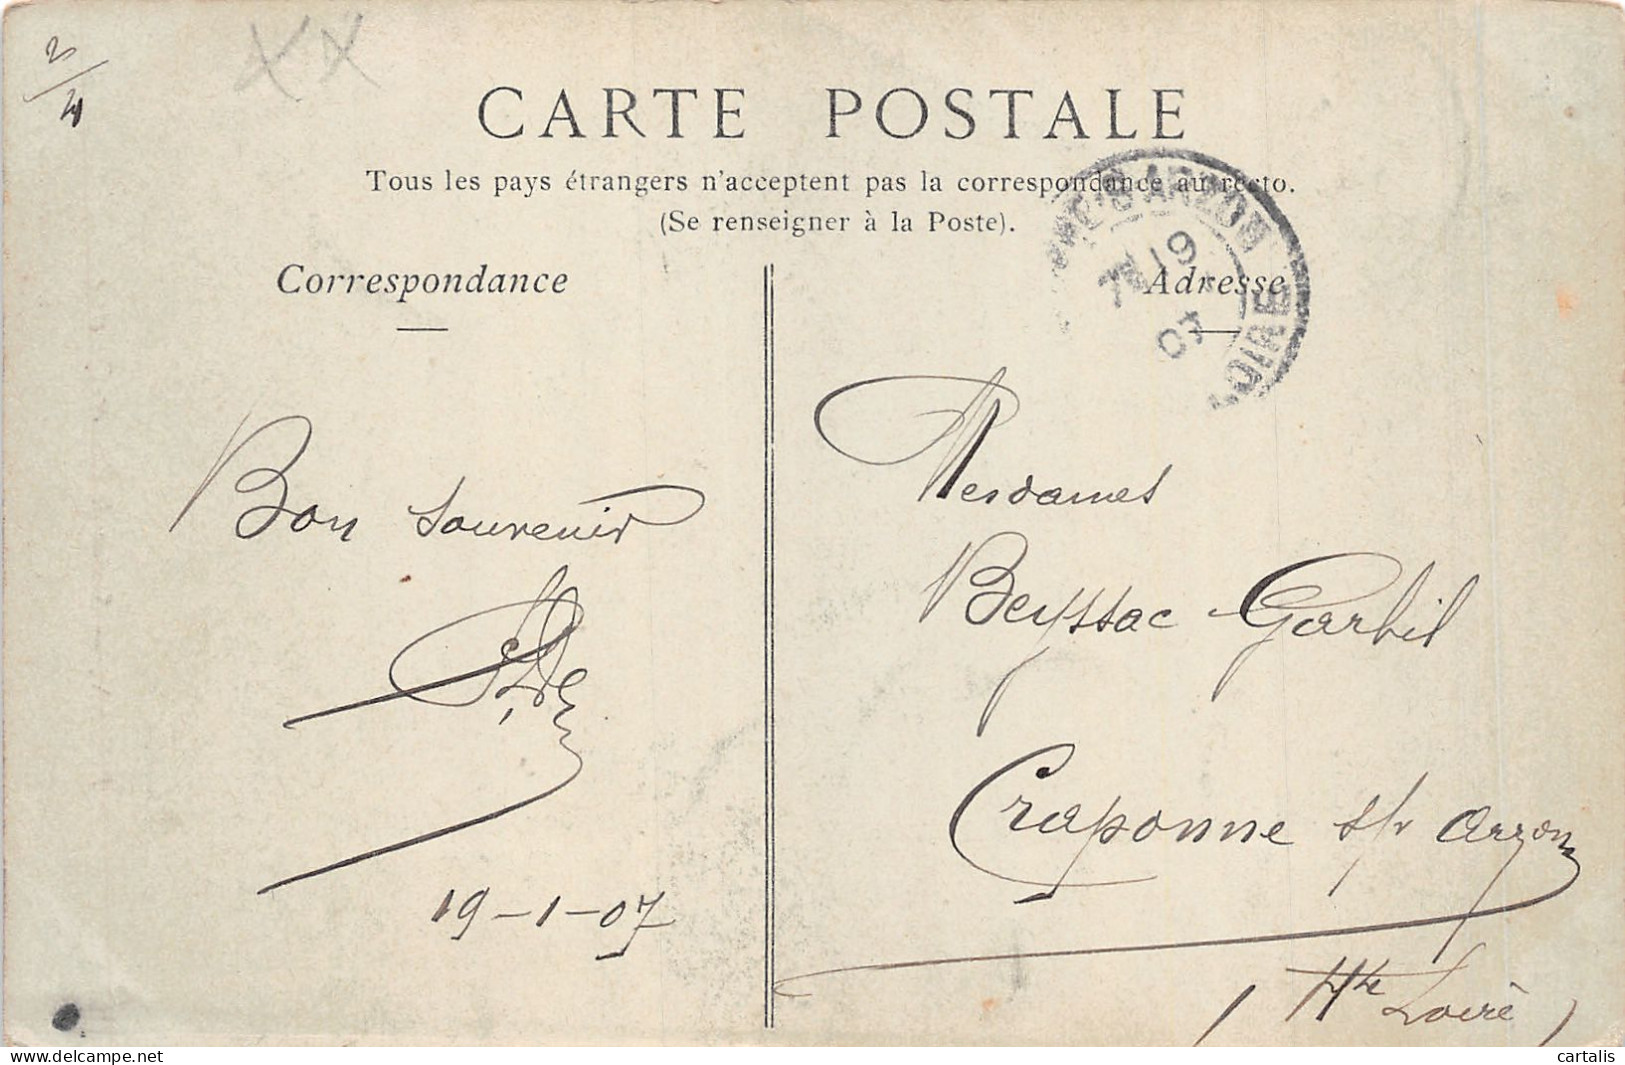 CARTE POSTALE
Tous les pays étrangers n'acceptent pas la correspondance au recto.
(Se renseigner à la Poste).
Correspondance
Adresse
Bon souvenir
19-1-07
Mesdames
Beyssac Garbil
Craponne s/r Arzon
(Hte Loire)
D'ARZON
19
07
LOIRE
cartalis